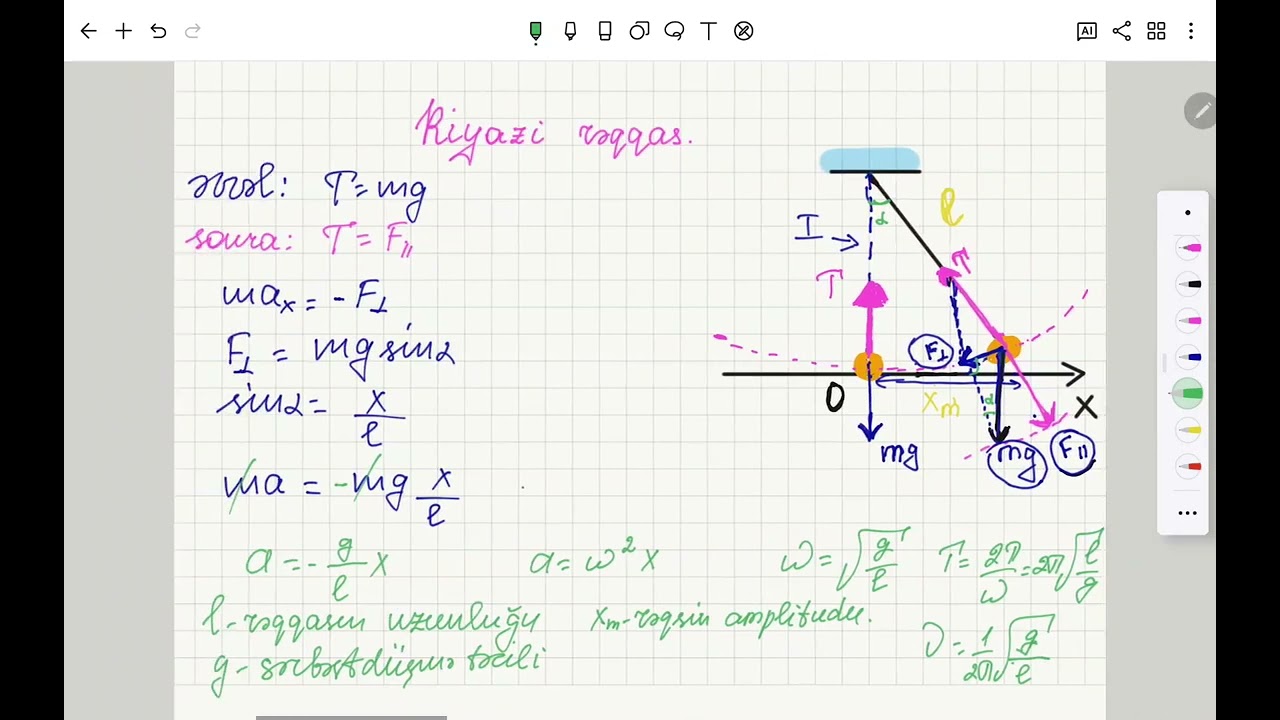 AI
T
Riyazi rəqqas.
əvvəl: T = mg
sonra: T = F∥
maₓ = - F⊥
F⊥ = mg sinα
sinα = x/l
ma = - mg x/l
a = - g/l x
a = ω² x
ω = √(g/l)
T = 2π/ω = 2π√(l/g)
l - rəqqasın uzunluğu
xₘ - rəqsin amplitudu.
ν = 1/2π √(g/l)
g - sərbəstdüşmə təcili
α
l
I
T
T
F⊥
O
xₘ
α
X
mg
mg
F∥